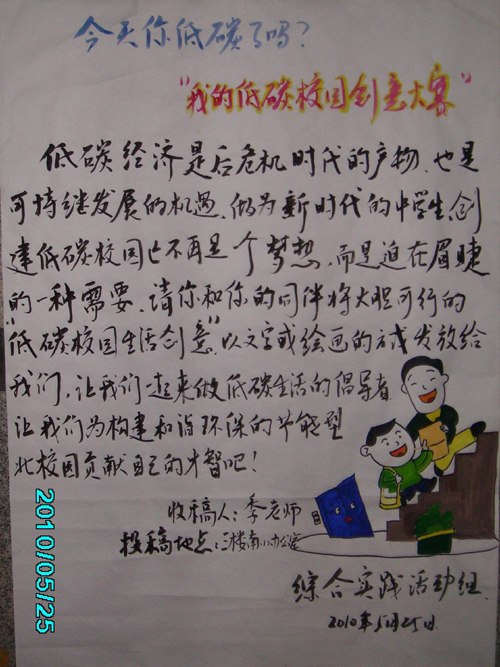 今天你低碳了吗?
"我的低碳校园创意大赛"
低碳经济是后危机时代的产物,也是
可持继发展的机遇,做为新时代的中学生,创
建低碳校园已不再是个梦想,而是迫在眉睫
的一种需要,请你和你的同伴将大胆可行的
"低碳校园生活创意"以文字或绘画的方式发放给
我们,让我们一起来做低碳生活的倡导者
让我们为构建和谐环保的节能型
北校园贡献自己的才智吧!
收稿人:季老师
投稿地点:三楼南小办公室
综合实践活动组
2010年5月25日
2010/05/25